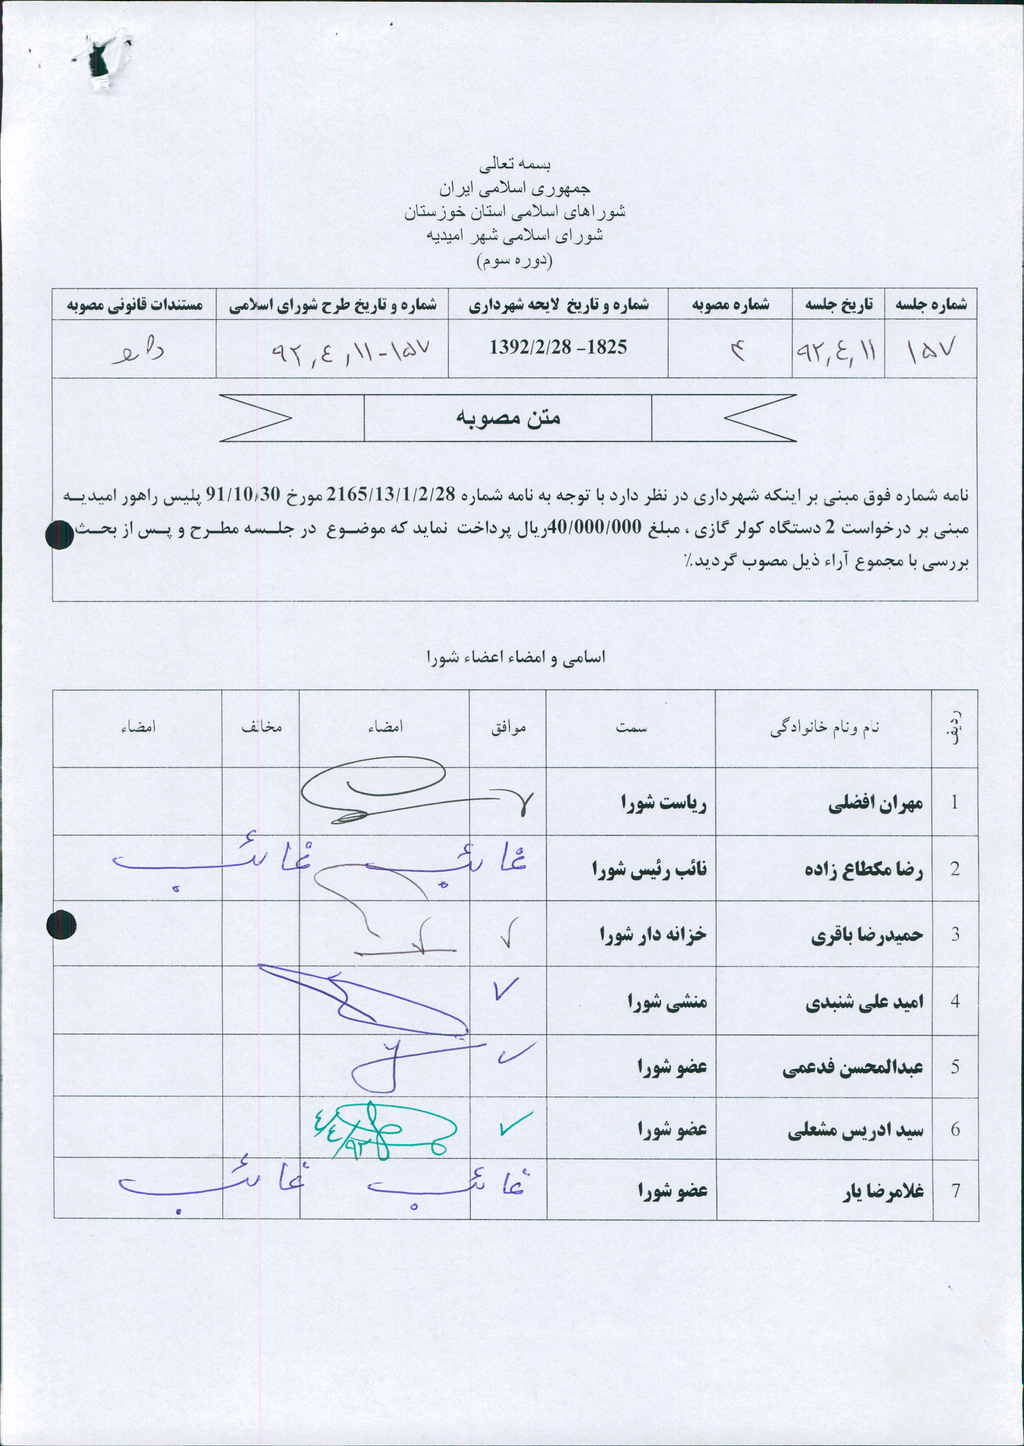 بسمه تعالی
جمهوری اسلامی ایران
شوراهای اسلامی استان خوزستان
شورای اسلامی شهر امیدیه
(دوره سوم)
شماره جلسه تاریخ جلسه شماره مصوبه شماره و تاریخ لایحه شهرداری شماره و تاریخ طرح شورای اسلامی مستندات قانونی مصوبه
۱۵۷ ۹۲,٤,۱۱ ۴ 1825- 1392/2/28 ۱۵۷-۹۲,٤,۱۱
متن مصوبه
نامه شماره فوق مبنی بر اینکه شهرداری در نظر دارد با توجه به نامه شماره 2165/13/1/2/28 مورخ 91/10/30 پلیس راهور امیدیه
مبنی بر درخواست 2 دستگاه کولر گازی ، مبلغ 40/000/000ریال پرداخت نماید که موضوع در جلسه مطرح و پس از بحث
بررسی با مجموع آراء ذیل مصوب گردید.٪
اسامی و امضاء اعضاء شورا
ردیف نام ونام خانوادگی سمت موافق امضاء مخالف امضاء
1 مهران افضلی ریاست شورا
2 رضا مکطاع زاده نائب رئیس شورا غائب غائب
3 حمیدرضا باقری خزانه دار شورا
4 امید علی شنبدی منشی شورا
5 عبدالمحسن فدعمی عضو شورا
6 سید ادریس مشعلی عضو شورا
7 غلامرضا یار عضو شورا غائب غائب